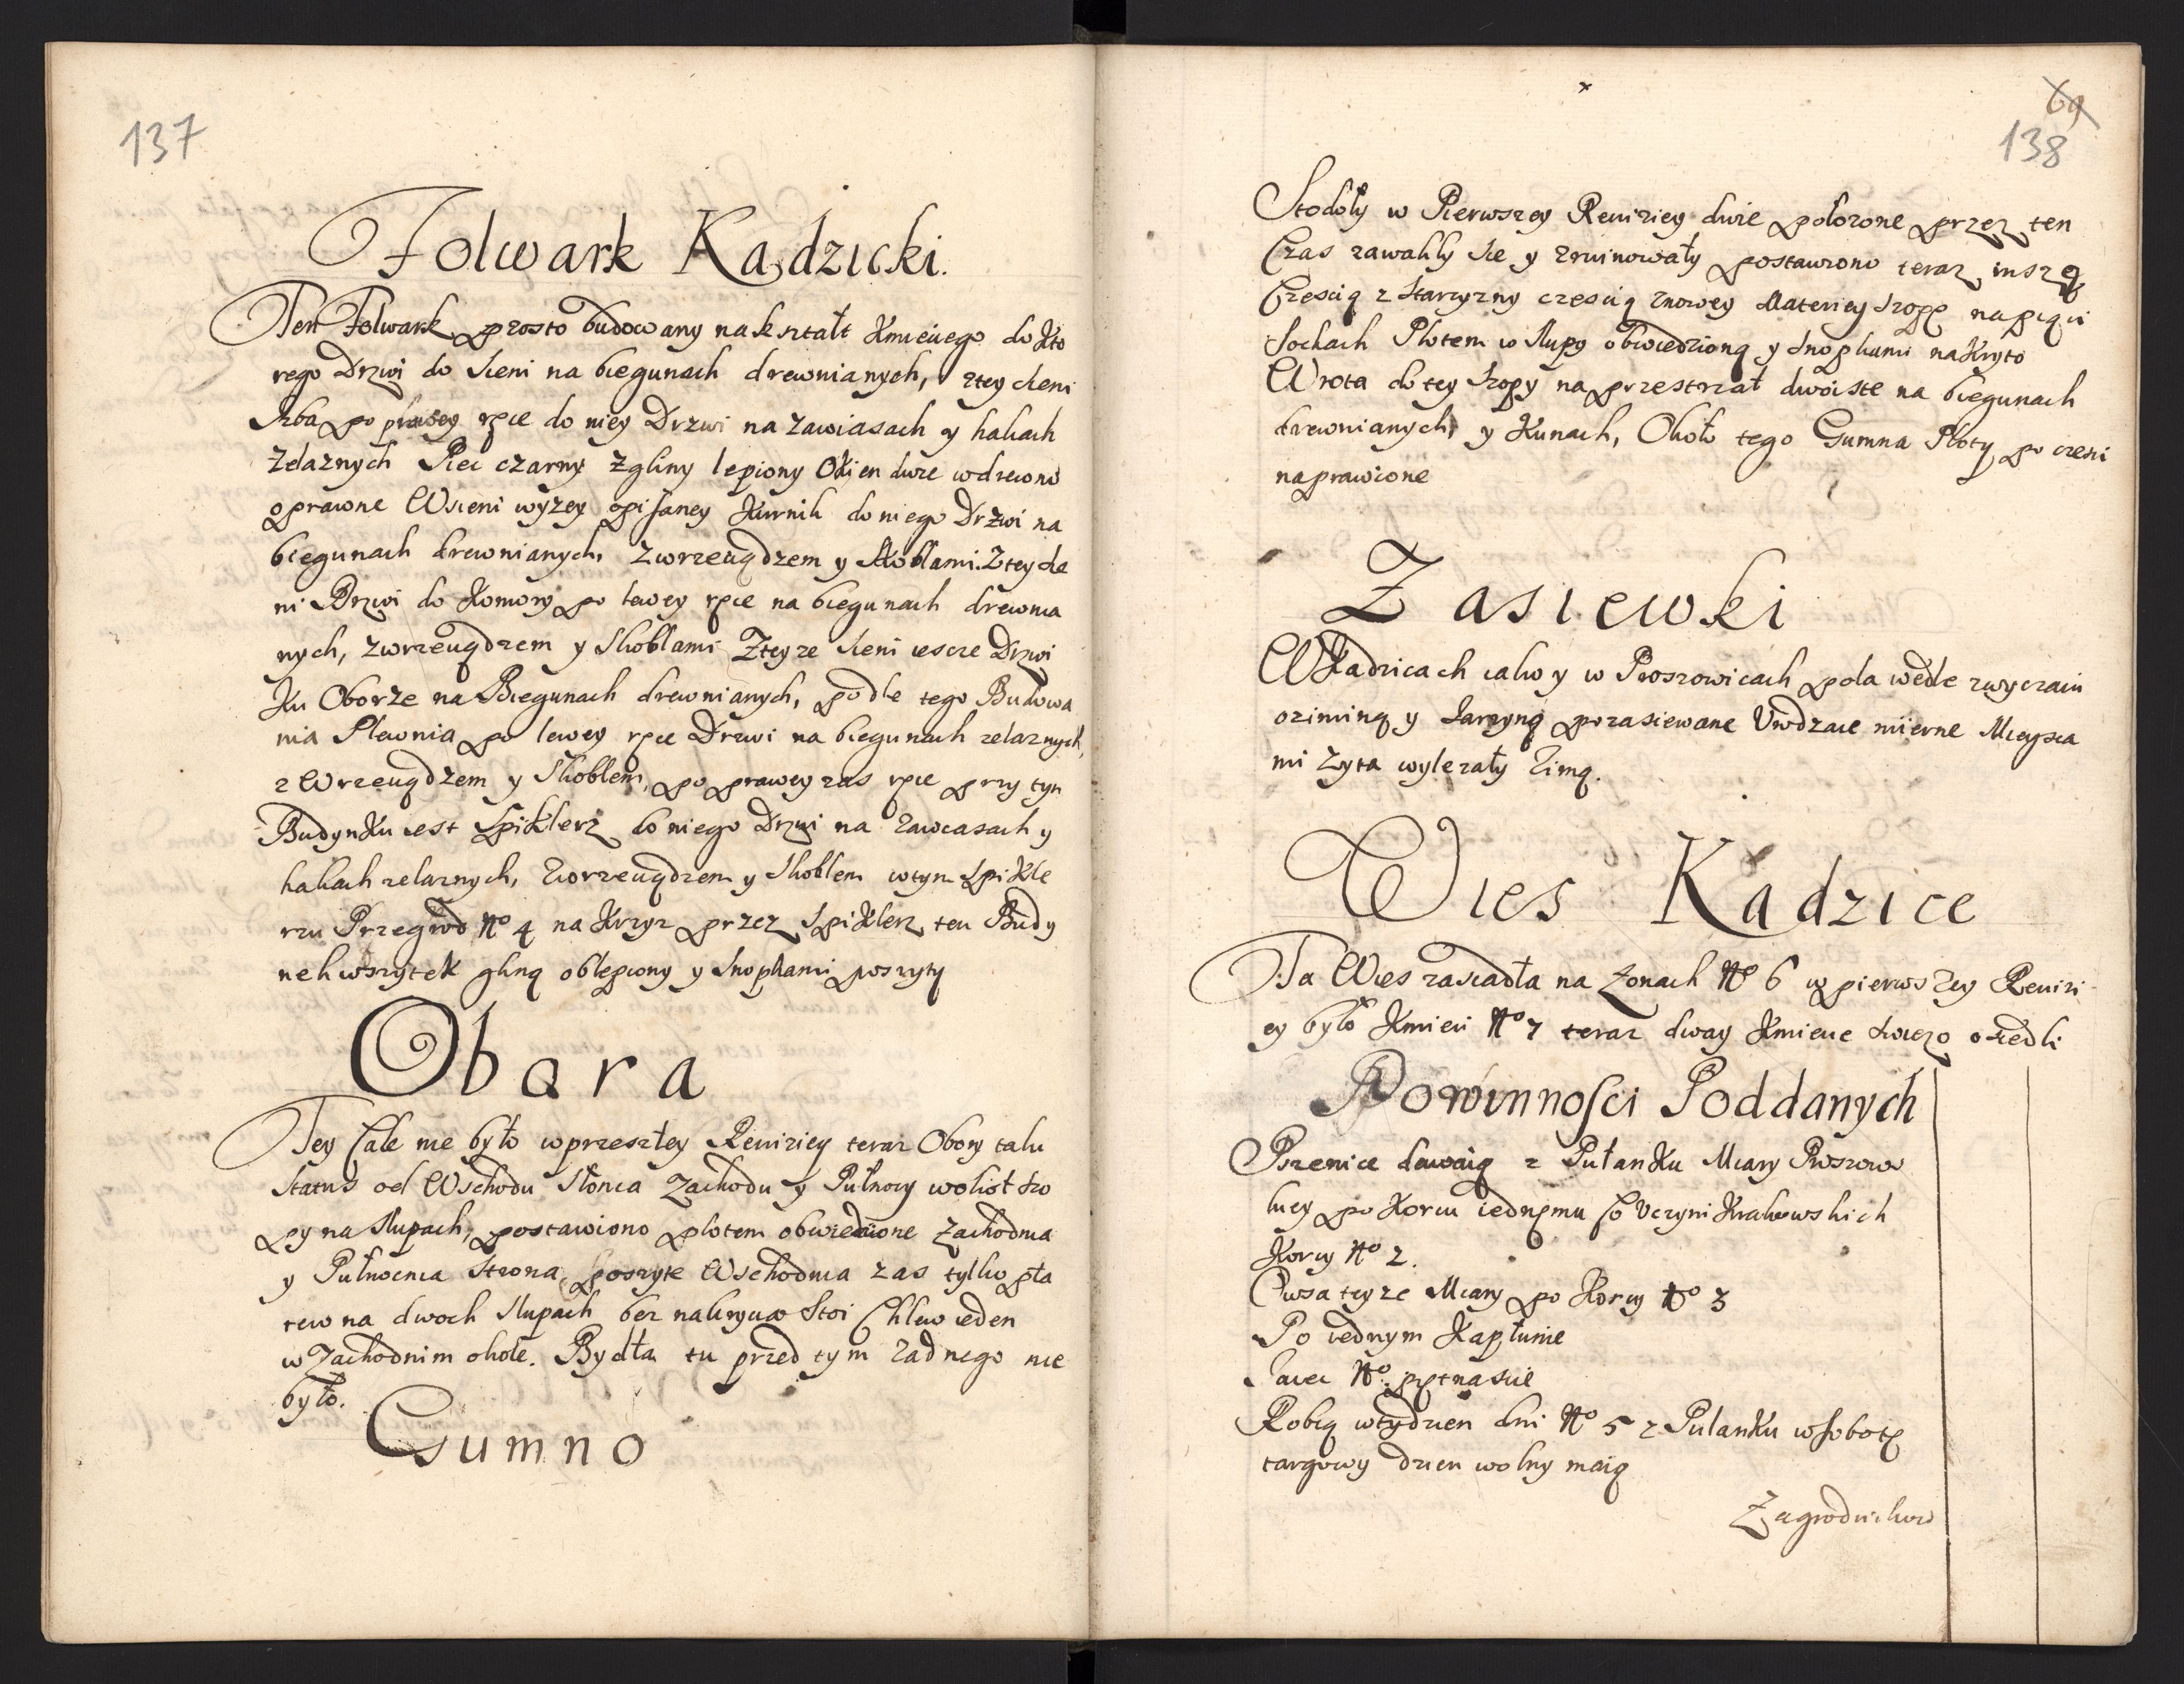 137
Folwark Kadzicki.
Ten Folwark prosto budowany na ksztalt Kmieciego do Kto
rego Drzwi do Sieni na biegunach drewnianych, z tey sieni
Izba po prawey ręce do niey Drzwi na zawiasach y hakach
żelaznych Piec czarny z gliny lepiony Okien dwie w drewno
oprawne W sieni wyżey opisaney Kurnik do niego Drzwi na
biegunach drewnianych, z wrzeciądzem y Skoblami. Z tey sie
ni Drzwi do Komory po lewey ręce na biegunach drewnia
nych, z wrzeciądzem y Skoblami Z teyze Sieni iescze Drzwi
Ku Oborze na Biegunach drewnianych, podle tego Budowa
nia Plewnia po lewey ręce Drzwi na biegunach zelaznych,
z Wrzeciądzem y Skoblem, po prawey zas ręce przy tym
Budynku iest Spiklerz do niego Drzwi na zawiasach y
hakach zelaznych, z wrzeciądzem y Skoblem w tym Spikle
rzu Przegrod No 4 na Krzyz przez Spiklerz ten Budy
nek wszytek gliną oblepiony y Snopkami poszyty
Obora
Tey Cale nie było w przeszłey Rewiziey teraz Obory taki
status od Wschodu Słonca Zachodu y Pułnocy wokoł szo
py na słupach, postawiono płotem obwiedzione zachodnia
y Pułnocna strona poszyte Wschodnia zas tylko pła
tew na dwoch słupach bez nakrycia stoi Chlew ieden
w zachodnim okole. Bydła tu przed tym zadnego nie
było.
Gumno
69
138
Stodoły w Pierwszey Rewiziey dwie położone przez ten
Czas zawaliły sie y zruinowały postawiono teraz inszą
Częscią z starzyzny częscią z nowey Materiey szopę na pięci
sochach Płotem w słupy obwiedzioną y snopkami nakryto
Wrota do tey szopy na przestrzał dwoiste na biegunach
drewnianych, y Kunach, Około tego Gumna Płoty po częsci
naprawione
Zasiewki
W Kadzicach iako y w Proszowicach pola wedle zwyczaiu
oziminą y Jarzyną pozasiewane Vrodzaie mierne Mieysca
mi żyta wyleżały Zimą.
Wies Kadzice
Ta Wies zasiadła na Łonach No 6 w pierwszey Rewizi
ey było Kmieci No 7 teraz dway Kmiecie swiezo osiedli
Powinnosci Poddanych
Pszenice dawaią z Pułanku Miary Proszow
skiey po Korcu iednemu co Vczyni Krakowskich
Korcy No 2.
Owsa teyze Miary po Korcy No 3
Po iednym Kapłunie
Jaiec No piętnascie
Robią w tydzien dni No 5 z Pulanku w sobotę
targowy dzien wolny maią
Zagrodnikow